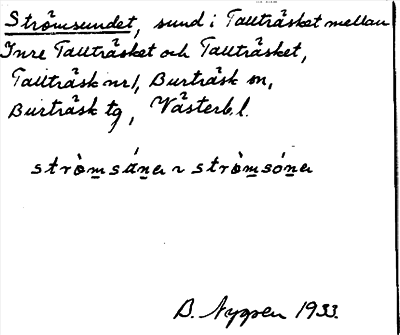 Strömsundet, sund i Tallträsket mellan
Inre Tallträsket och Tallträsket,
Tallträsk nr 1, Burträsk sn,
Burträsk tg, Västerb. l.
strömsúna ~ strömsóna
B. Nygren 1933.